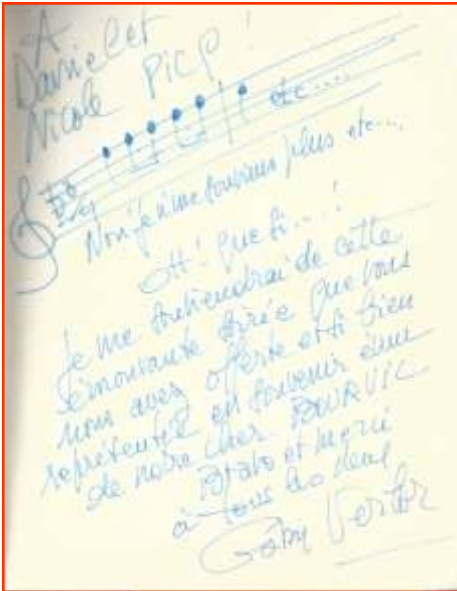 A
Daniel et
Nicole PICP !
etc....
Non je n'me souviens plus etc...
Oh ! que si... !
Je me souviendrai de cette
émouvante soirée que vous
nous avez offerte et si bien
représentée en souvenir ému
de notre cher BOURVIL
Bravo et merci
à tous les deux